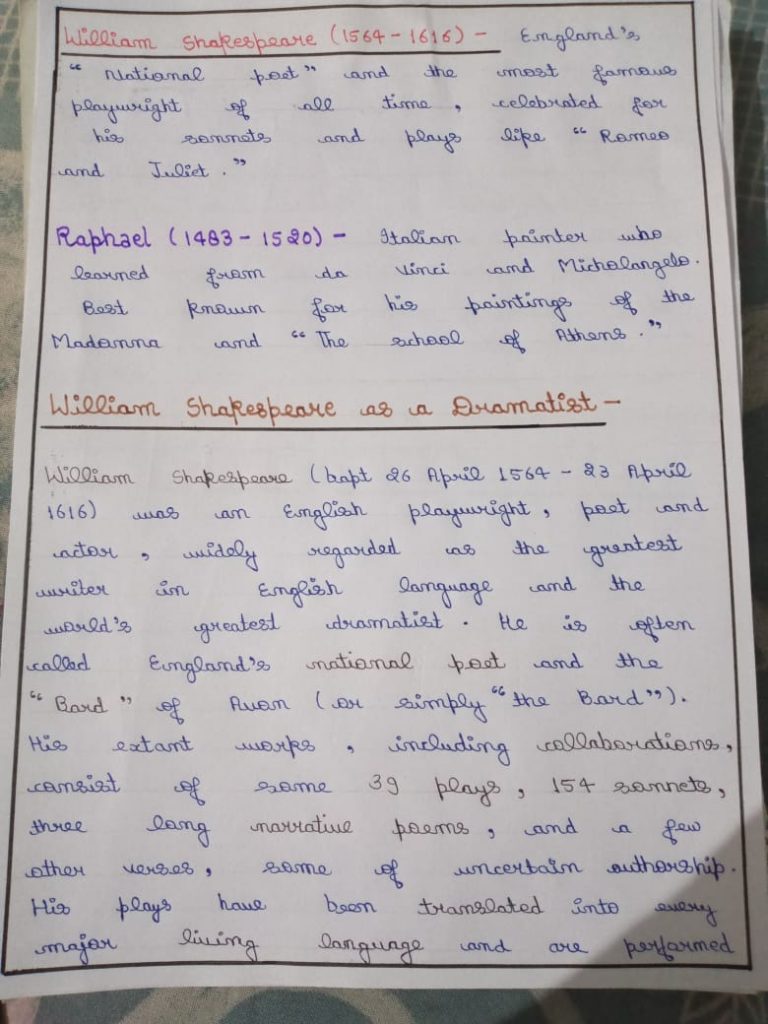 William Shakespeare (1564 - 1616) - England's
"National poet" and the most famous
playwright of all time, celebrated for
his sonnets and plays like "Romeo
and Juliet."
Raphael (1483 - 1520) - Italian painter who
learned from da Vinci and Micholangelo.
Best known for his paintings of the
Madonna and "The school of Athens."
William Shakespeare as a Dramatist -
William Shakespeare (bapt 26 April 1564 - 23 April
1616) was an English playwright, poet and
actor, widely regarded as the greatest
writer in English language and the
world's greatest dramatist. He is often
called England's national poet and the
"Bard" of Avon (or simply "the Bard").
His extant works, including collaborations,
consist of some 39 plays, 154 sonnets,
three long narrative poems, and a few
other verses, some of uncertain authorship.
His plays have been translated into every
major living language and are performed